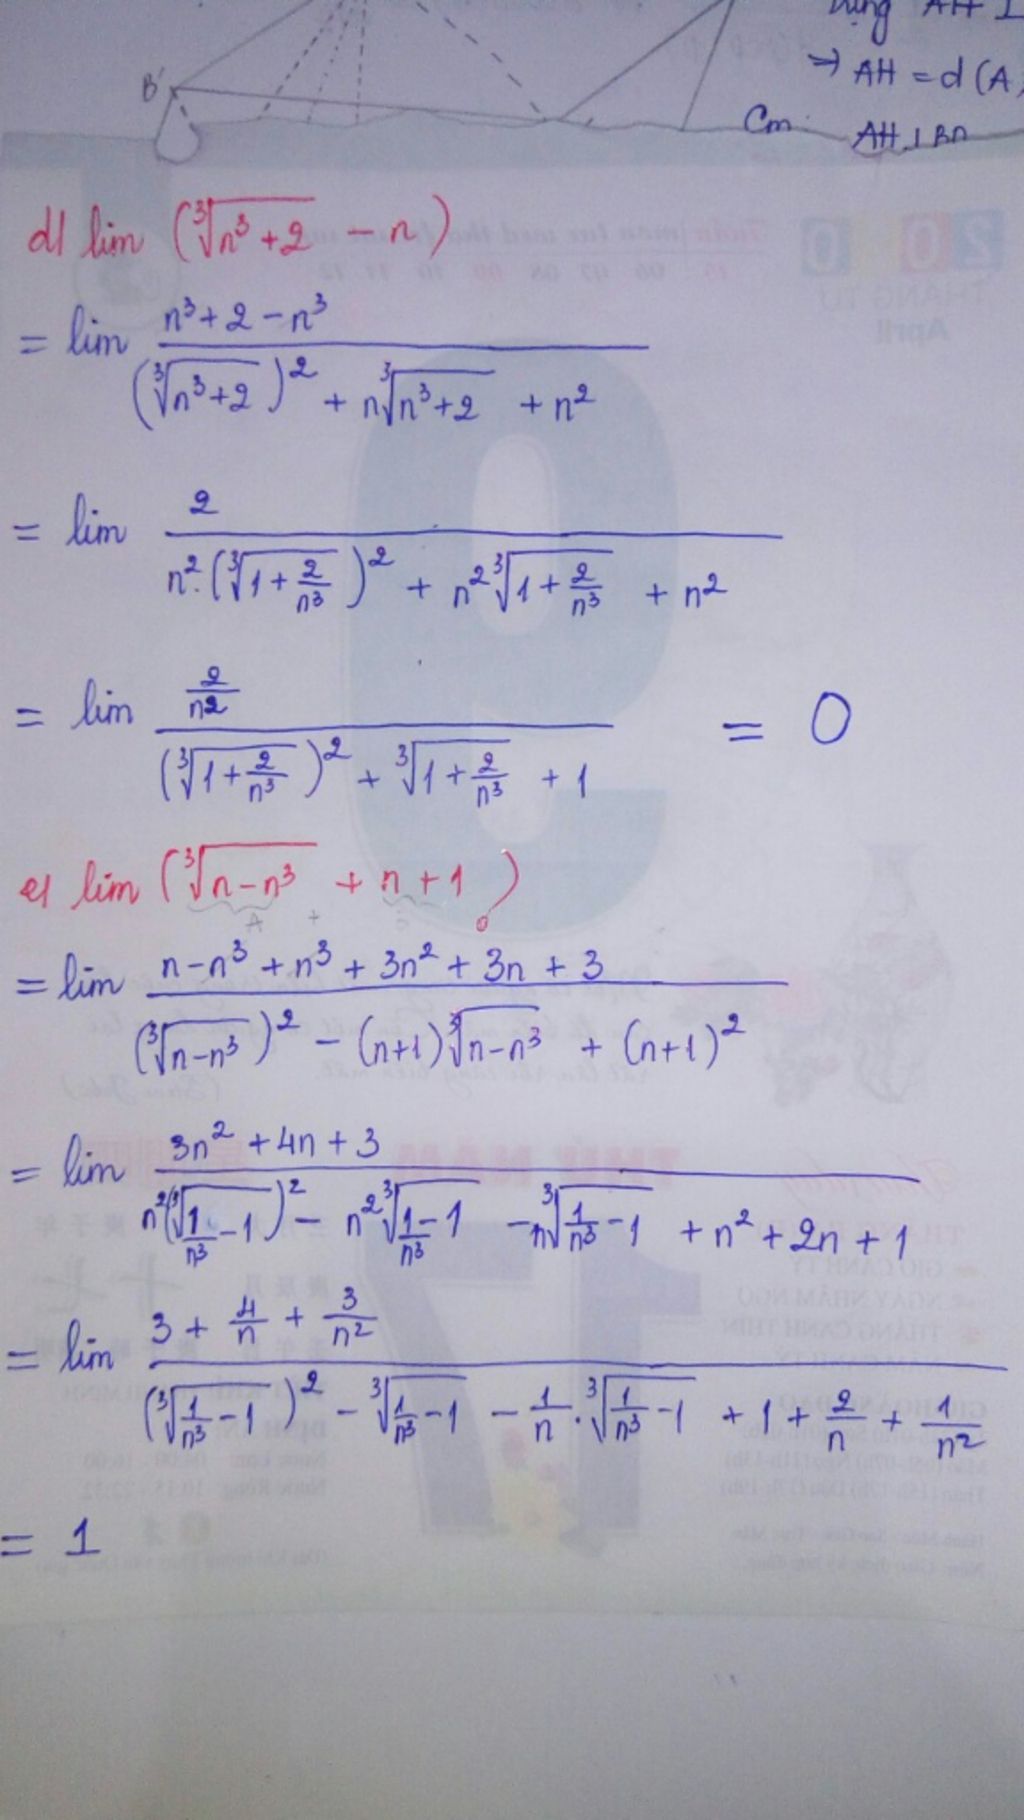 AH ⊥
B'
⇒ AH = d(A,
Cm
AH ⊥ BD
d) lim (∛(n³+2) - n)
= lim (n³+2-n³) / ((∛(n³+2))² + n∛(n³+2) + n²)
= lim 2 / (n².(∛(1+2/n³))² + n²∛(1+2/n³) + n²)
= lim (2/n²) / ((∛(1+2/n³))² + ∛(1+2/n³) + 1) = 0
e) lim (∛(n-n³) + n+1)
A +
= lim (n-n³+n³+3n²+3n+3) / ((∛(n-n³))² - (n+1)∛(n-n³) + (n+1)²)
= lim (3n²+4n+3) / (n²(∛(1/n³-1))² - n²∛(1/n³-1) - n∛(1/n³-1) + n²+2n+1)
= lim (3+4/n+3/n²) / ((∛(1/n³-1))² - ∛(1/n³-1) - 1/n.∛(1/n³-1) + 1+2/n+1/n²)
= 1